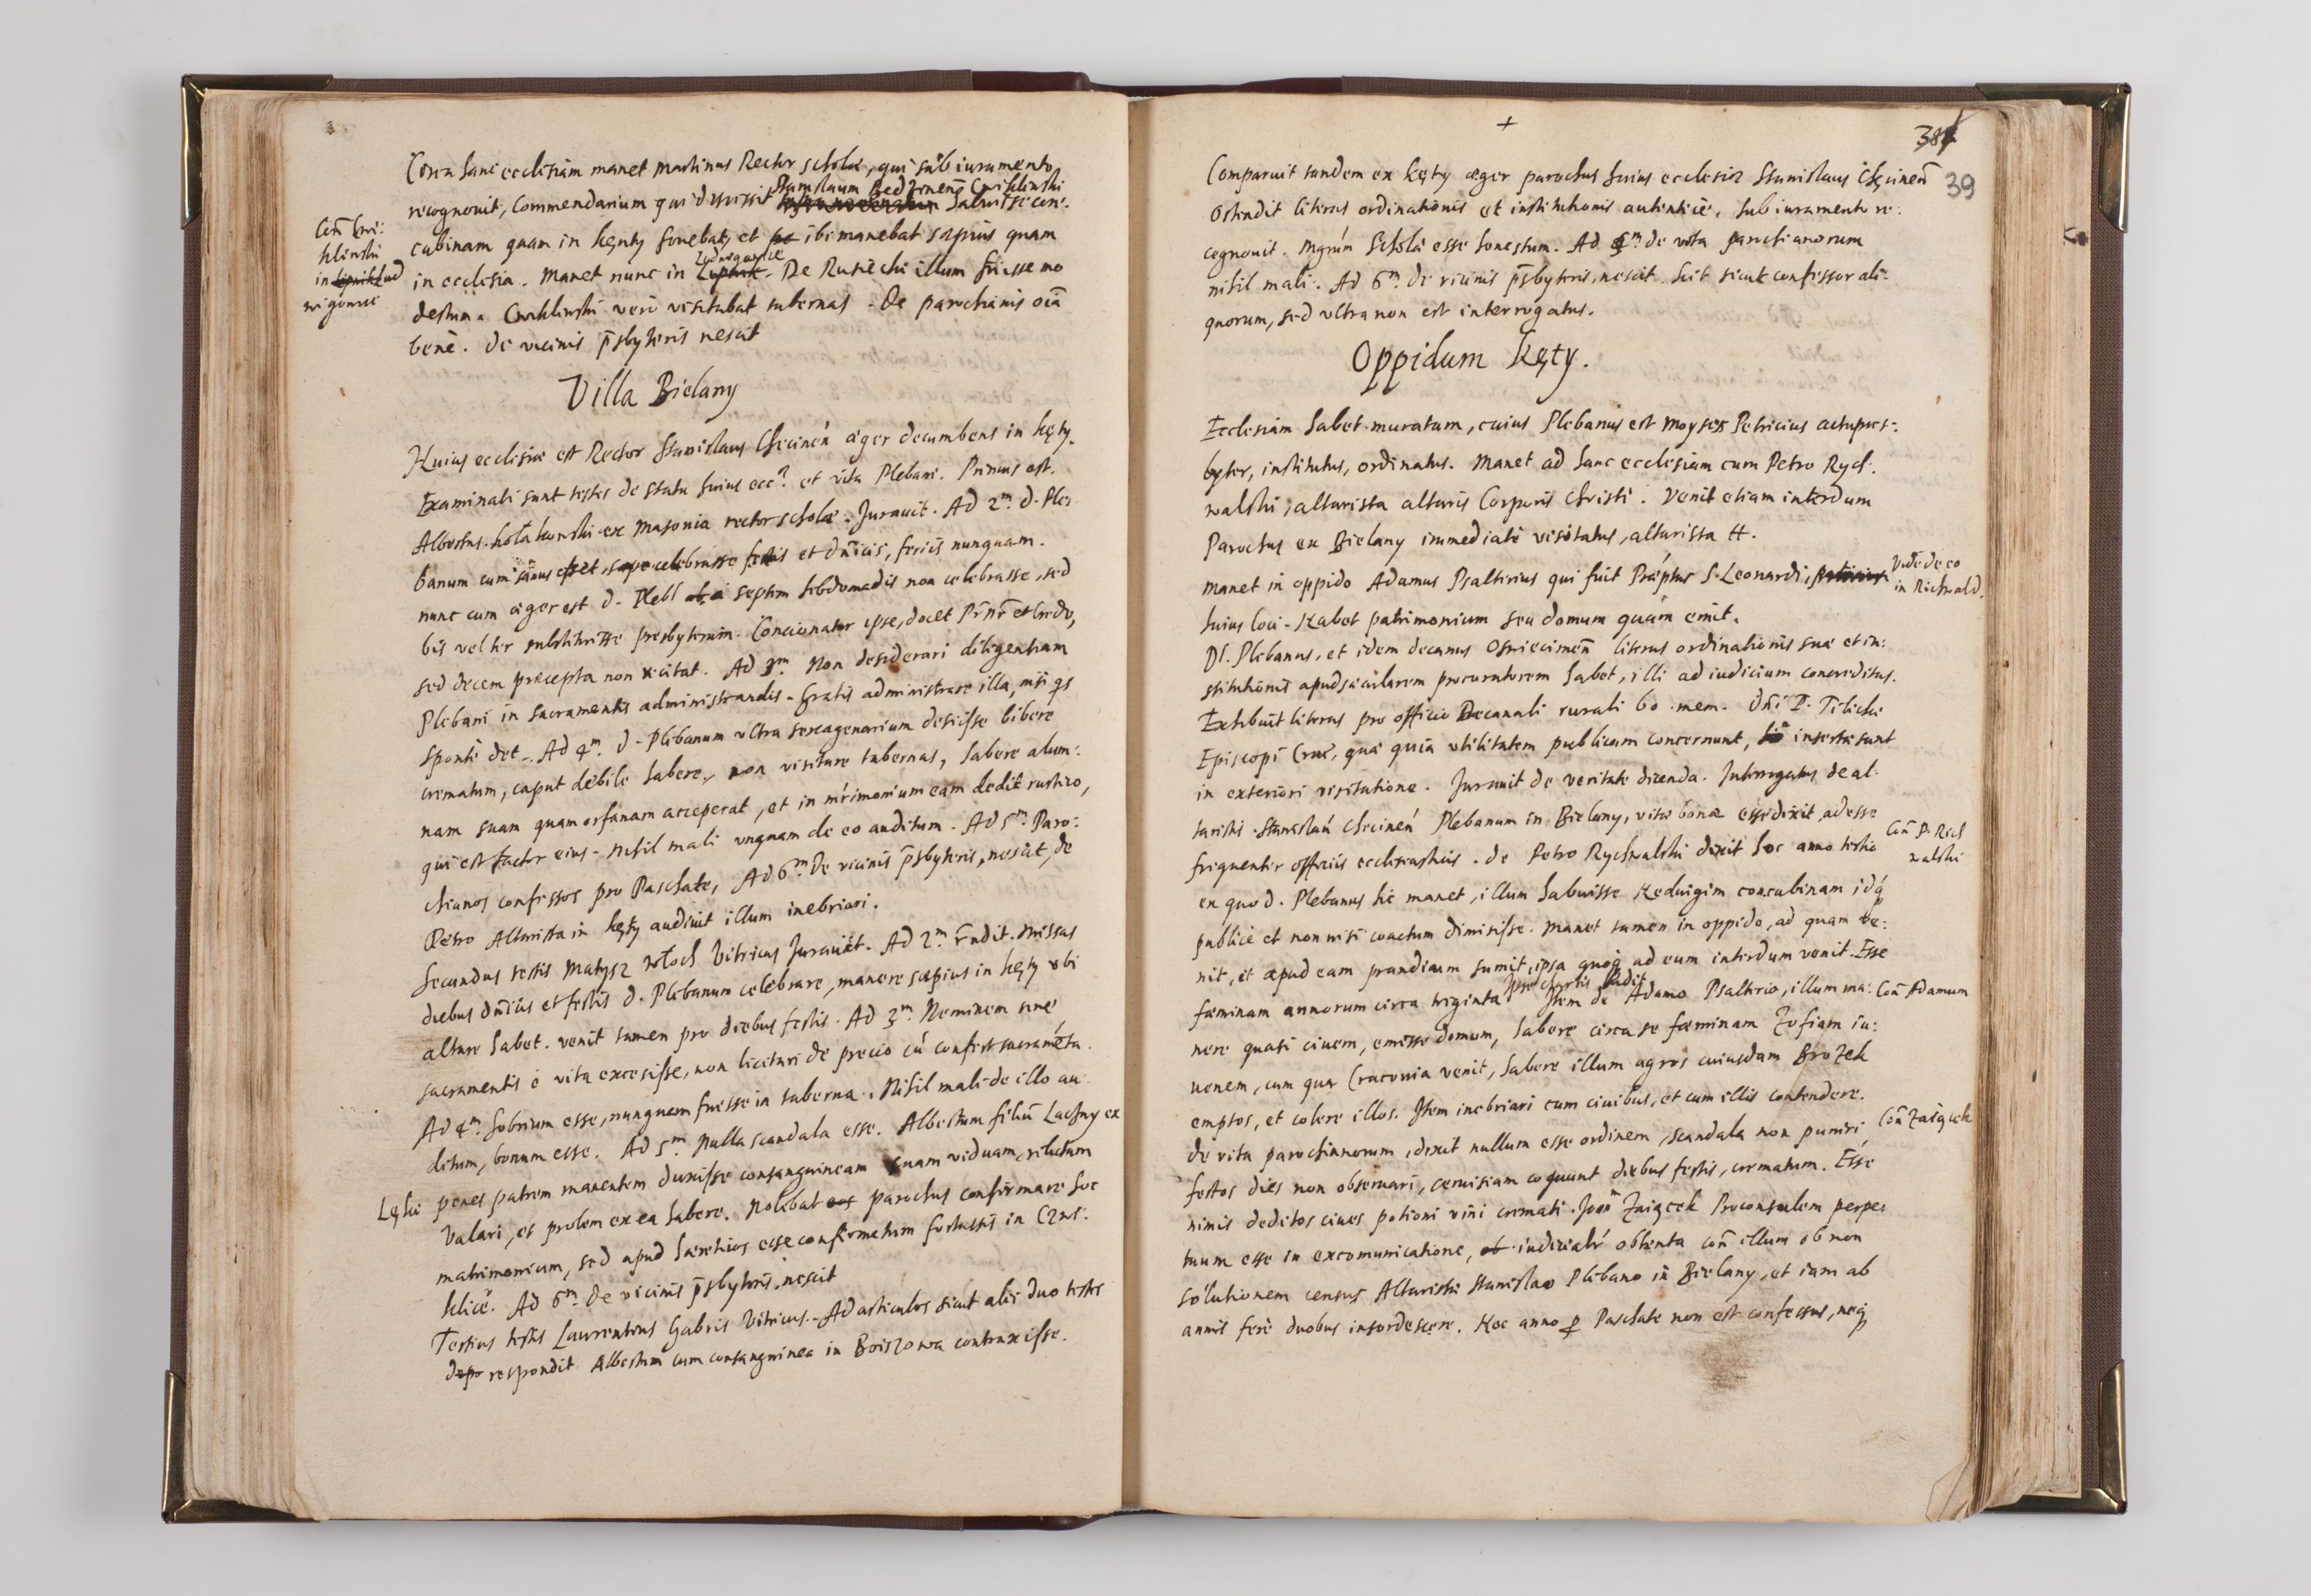 Circa hanc ecclesiam manet Martinus Rector scholæ, qui sub iuramento
recognouit, Commendarium qui discessit Stanislaum Cwiklinski habuisse con:
Con Cwi:
klinski
in Lud
wigowice
cubinam quam in Kęnty fouebat, et ibi manebat sæpius quam
in ecclesia. Manet nunc in Ludwigowice. De Rusiecki illum fuisse mo
destum. Cwiklinski vero visitabat tabernas. De parochianis oĩa
bene. De vicinis p̃sbyteris nescit
Villa Bielany
Huius ecclesiæ est Rector Stanislaus Checinen̄ æger decumbens in Kęty.
Examinati sunt testes de statu huius ecc. et vita Plebani. Primus est.
Albertus ex Masonia rector scholæ. Jurauit. Ad 2m. d. Ple:
banum cum sanus esset, sæpe celebrasse festis et dn̄icis, feriis nunquam.
nunc cum æger est d. Pleb a septem hebdomadis non celebrasse, sed
bis vel ter substituisse presbyterum. Concionatur ipse, docet Pr̄ nr̄ et Credo,
sed decem præcepta non recitat. Ad 3m. Non desiderari diligentiam
Plebani in sacramentis administrandis. Gratis administrare illa, nisi qs
sponte det. Ad 4m. d. Plebanum vltra sexagenarium desiisse bibere
crematum, caput debile habere, non visitare tabernas, habere alum:
nam suam quam orfanam acceperat, et in mr̄imonium eam dedit rustico,
qui est factor eius. Nihil mali vnquam de eo auditum. Ad 5m. Paro:
chianos confessos pro Paschate, Ad 6m. De vicinis p̃sbyteris, nescit, de
Petro Altarista in Kęty audiuit illum inebriari.
Secundus testis Matysz Włoch Vitricus Jurauit. Ad 2m. r̄ndit. Missas
diebus dn̄icis et festis d. Plebanum celebrare, manere sæpius in Kęty vbi
altare habet. venit tamen pro diebus festis. Ad 3m. Neminem sine
sacramentis e vita excessisse, non licitari de precio cū confert sacramēta.
Ad 4m. Sobrium esse, nunquam fuisse in taberna. Nihil mali de illo au
ditum, bonum esse. Ad 5m. Nulla scandala esse. Albertum filiū Lachny ex
Lęki penes patrem manentem duxisse consanguineam suam viduam, relictam
Valari, et prolem ex ea habere. Nolebat eos parochus confirmare hoc
matrimonium, sed apud hæreticos esse confirmatum fortassis in
Ad 6m. De vicinis p̃sbyteris nescit
Tertius testis Laurentius Gabris Vitricus. Ad articulos sicut alii duo testes
depo respondit Albertum cum consanguinea in contraxisse.
+
38
39
Comparuit tandem ex Kęty æger parochus huius ecclesiæ Stanislaus Chęcinen̄
Ostendit literas ordinationis et institutionis autentice. Sub iuramento re:
cognouit. Mgrūm Scholæ esse honestum. Ad 5m. de vita parochianorum
nihil mali. Ad 6m. De vicinis p̃sbyteris, nescit. Scit sicut confessor ali:
quorum, sed vltra non est interrogatus.
Oppidum Kęty.
Ecclesiam habet muratam, cuius Plebanus est Moyses Petricius actu pres:
byter, institutus, ordinatus. Manet ad hanc ecclesiam cum Petro Rych:
walski, altarista altaris Corporis Christi. Venit etiam interdum
Parochus ex Bielany immediate visitatus, altarista
Manet in oppido Adamus Psalterius qui fuit S. Leonardi,
Vide de eo
in Richwald.
huius loci. Habet patrimonium seu domum quam emit.
Dl. Plebanus, et idem decanus Oswiecimen̄ literas ordinationis suæ et in:
stitutionis apud sæcularem procuratorem habet, illi ad iudicium concreditas.
Exhibuit literas pro officio Decanali rurali bo. mem. Dn̄i P. Tilicki
Episcopi Crac, quæ quia vtilitatem publicam concernunt, insertæ sunt
in exteriori visitatione. Jurauit de veritate dicenda. Interrogatus de al:
taristis. Stanislaū Checinen̄ Plebanum in Bielany, vitæ bonæ esse dixit, adesse
frequenter officiis ecclesiasticis. de Petro Rychwalski dixit hoc anno tertio
Con P. Rich
walski
ex quo d. Plebanus hic manet, illum habuisse Heduigim concubinam idq́
publice et non nisi coactum dimisisse. Manet tamen in oppido, ad quam ve:
nit, et apud eam prandium sumit, ipsa quoq ad eum interdum venit. Esse
fœminam annorum circa triginta Ipse chartis ludit Item de Adamo Psalterio, illum ma:
Con Adamum
nere quasi ciuem, emisse domum, habere circa se fœminam Zofiam iu:
uenem, cum qua Cracouia venit, habere illum agros cuiusdam Brozek
emptos, et colere illos. Item inebriari cum ciuibus, et cum illis contendere.
De vita parochianorum, dixit nullum esse ordinem, scandala non puniri,
Con Zaiącek
festos dies non obseruari, ceruisiam coquunt diebus festis, crematum. Esse
nimis deditos ciues potioni vini cremati. Joan Zaiącek Proconsulem perpe:
tuum esse in excomunicatione, ob iudicialr̄ obtenta con illum ob non
solutionem census Altaristæ Stanislao Plebano in Bielany, et iam ab
annis fere duobus insordescere. Hoc anno p Paschate non est confessus, neq